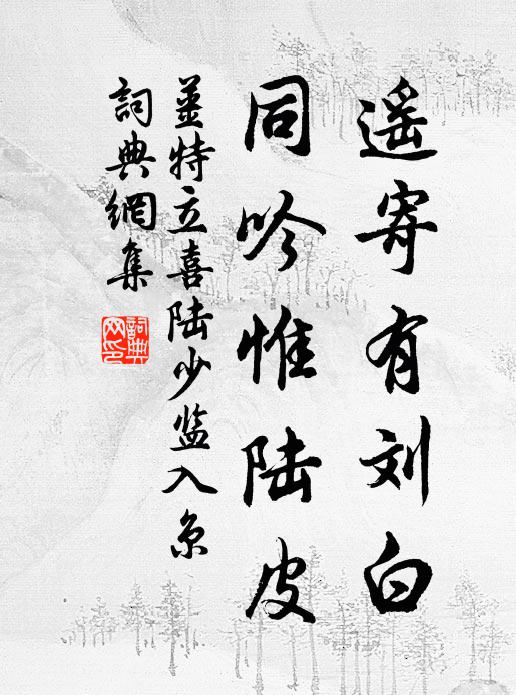 遥寄有刘白
同吟惟陆皮
薑特立喜陆少监入京
詞典網集
詞典网印